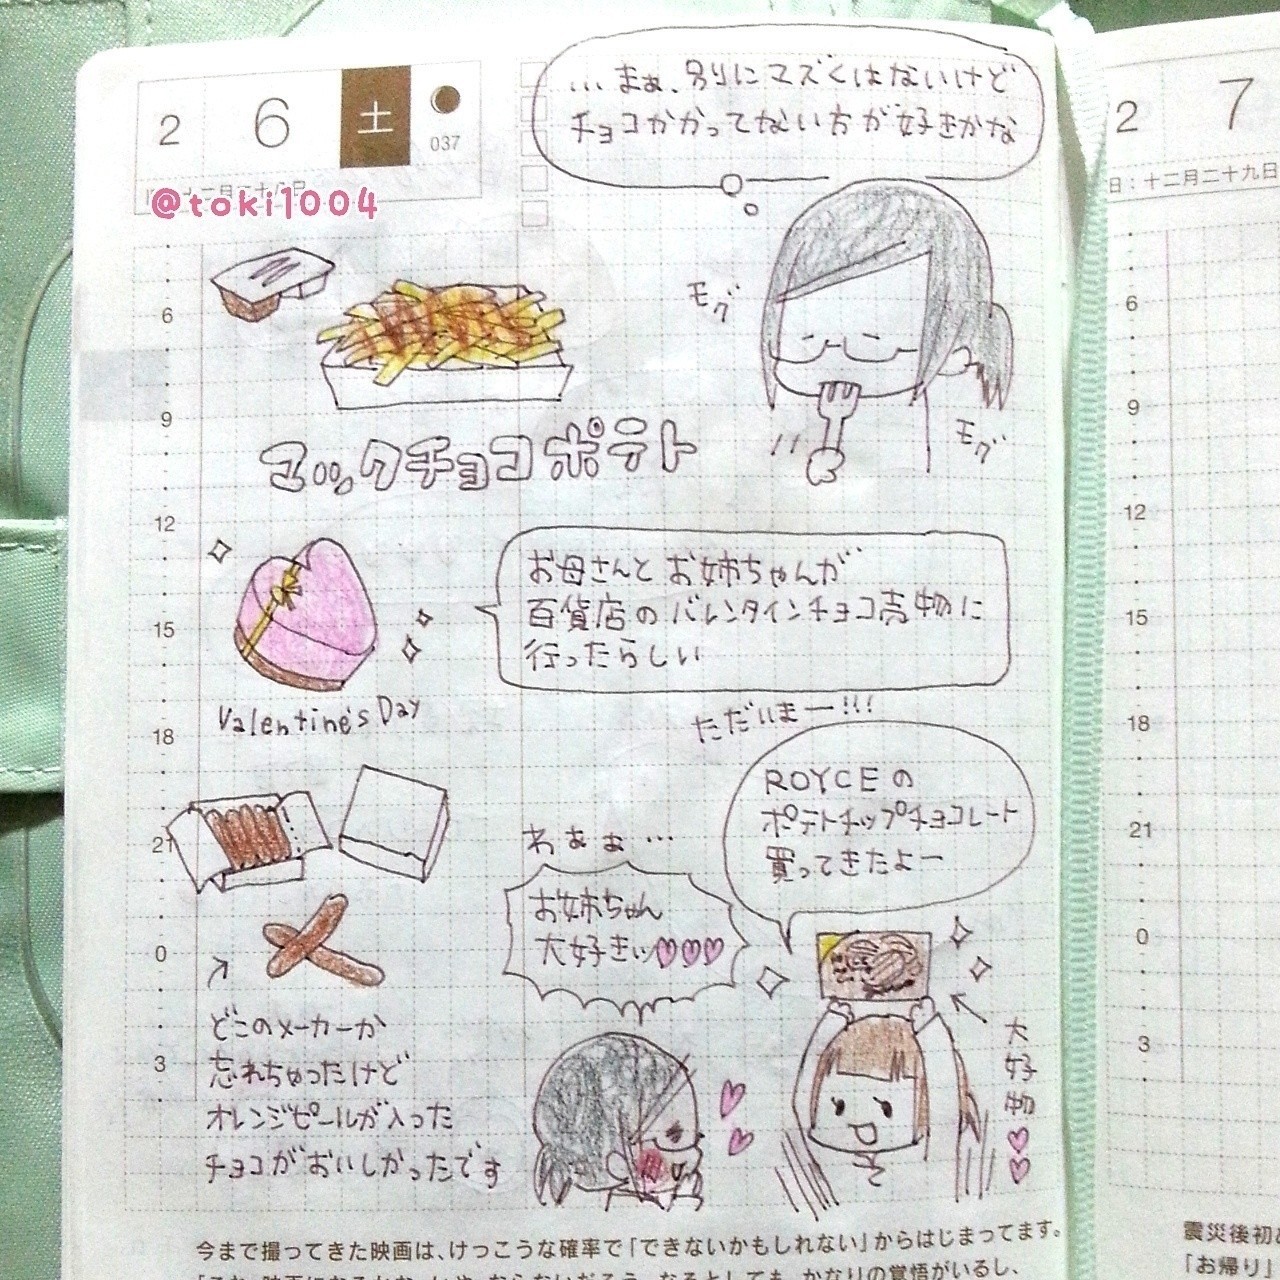 2
6
土
037
@toki1004
…まぁ、別にマズくはないけど
チョコかかってない方が好きかな
モグ
モグ
マックチョコポテト
お母さんとお姉ちゃんが
百貨店のバレンタインチョコ売物に
行ったらしい
Valentine's Day
ただいまー!!!
ROYCEの
ポテトチップチョコレート
買ってきたよー
わぁぁ…
お姉ちゃん
大好きぃ♡♡♡
大好物♡♡
どこのメーカーか
忘れちゃったけど
オレンジピールが入った
チョコがおいしかったです
6
9
12
15
18
21
0
3
今まで撮ってきた映画は、けっこうな確率で「できないかもしれない」からはじまってます。
2
7
日：十二月二十九日
6
9
12
15
18
21
0
3
震災後初
「お帰り」